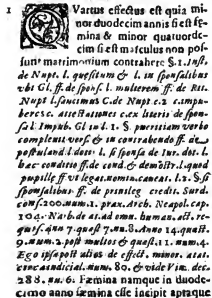 1 Vartus effectus est quia mi-
nor duodecim annis si est fę-
mina & minor quatuorde-
cim si est masculus non pos-
sunt matrimonium contrahere §. 1. Inst.
de Nupt. l. quęsitum & l. in sponsalibus
vbi Gl. ff. de sponsf. l. mulierem ff. de Rit.
Nupt. l. sancimus C. de Nupt. c. 2.
attestationes c. ex literis de spon-
sal. Impub. Gl. in l. 1. §. pueritiam verbo
compleuit vers. & in contrahendo ff. de
postuland. l. dotis l. si sponsa de Iur. dot. l.
hæc conditio ff. de cond. & demostr. l. quod
pupillę ff. vt legat. nomin. caueat. l. 2. §. si
sponsalibus ff. de priuileg. credit. Surd.
cons. 200. num. 1. prax. Arch. Neapol. cap.
104. Naib. de at. ad omn. human. act. re-
quis. qu. 7. quæst. 7. nu. 8. Anno 14. quæst.
9. num. 2. post multos & quæst. 11. num. 4.
Ego ipse post alios de effect. minor. ætat.
circa iudicial. num. 80. & vide Vin. dec.
288. nu. 6. Fæmina namque in duode-
cimo anno fæmina esse incipit aptaque